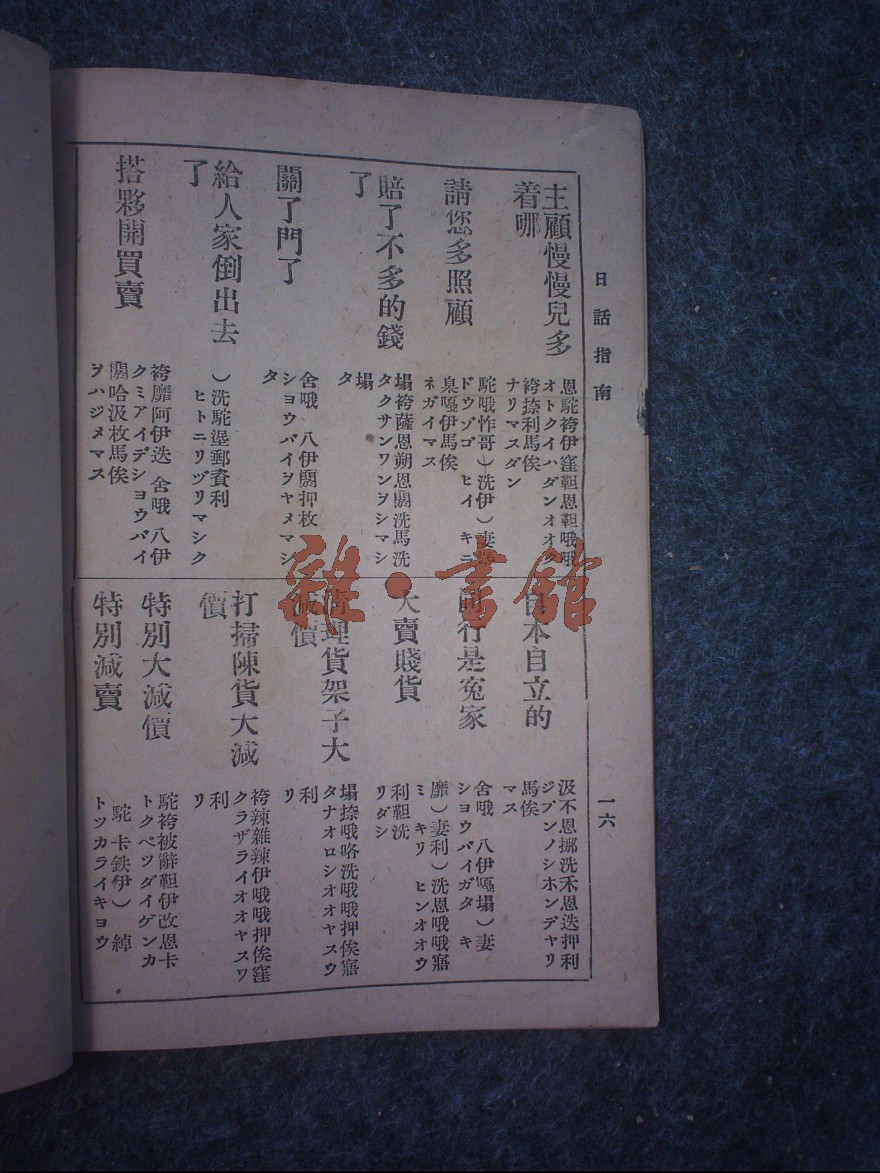 日話指南
一六
主顧慢慢兒多
着哪
恩駝袴伊窪靼恩靼哦哦
オトクイハダンオオク
袴捺利馬俟
ナリマスダン
請您多照顧
駝哦怍哥)洗伊)妻
ドウゾゴ ヒイ キニ
臬嘎伊馬俟
ネガイマス
賠了不多的錢
了
塌袴薩恩朔恩閼洗馬洗
タクサンワンヲシマシ
塌
タ
關了門了
舍哦 八伊閼押枚
ショウバイヲヤメマシ
タ
給人家倒出去
了
)洗駝
ヒトニリヅリマシク
搭夥開買賣
袴靡阿伊迭 舍哦 八伊
クミアイデショウバイ
閼哈汲枚馬俟
ヲハジメマス
日本自立的
汲不恩挪洗禾恩迭押利
ジブンノシホンデヤリ
馬俟
マス
同行是冤家
舍哦 八伊嘎塌)妻
ショウバイガタ キ
大賣賤貨
靡)妻利)洗恩哦哦寤
ミ キリ ヒンオオウ
利靼洗
リダシ
清理貨架子大
減價
塌捺哦咯洗哦哦押俟寤
タナオロシオオヤスウ
利
リ
打掃陳貨大減
價
袴辣雜辣伊哦哦押俟窪
クラザライオオヤスワ
利
リ
特別大減價
駝袴被辭靼伊改恩卡
トクベツダイゲンカ
特別減賣
駝 卡鉄伊)綽
トツカライキヨウ
雜·書館